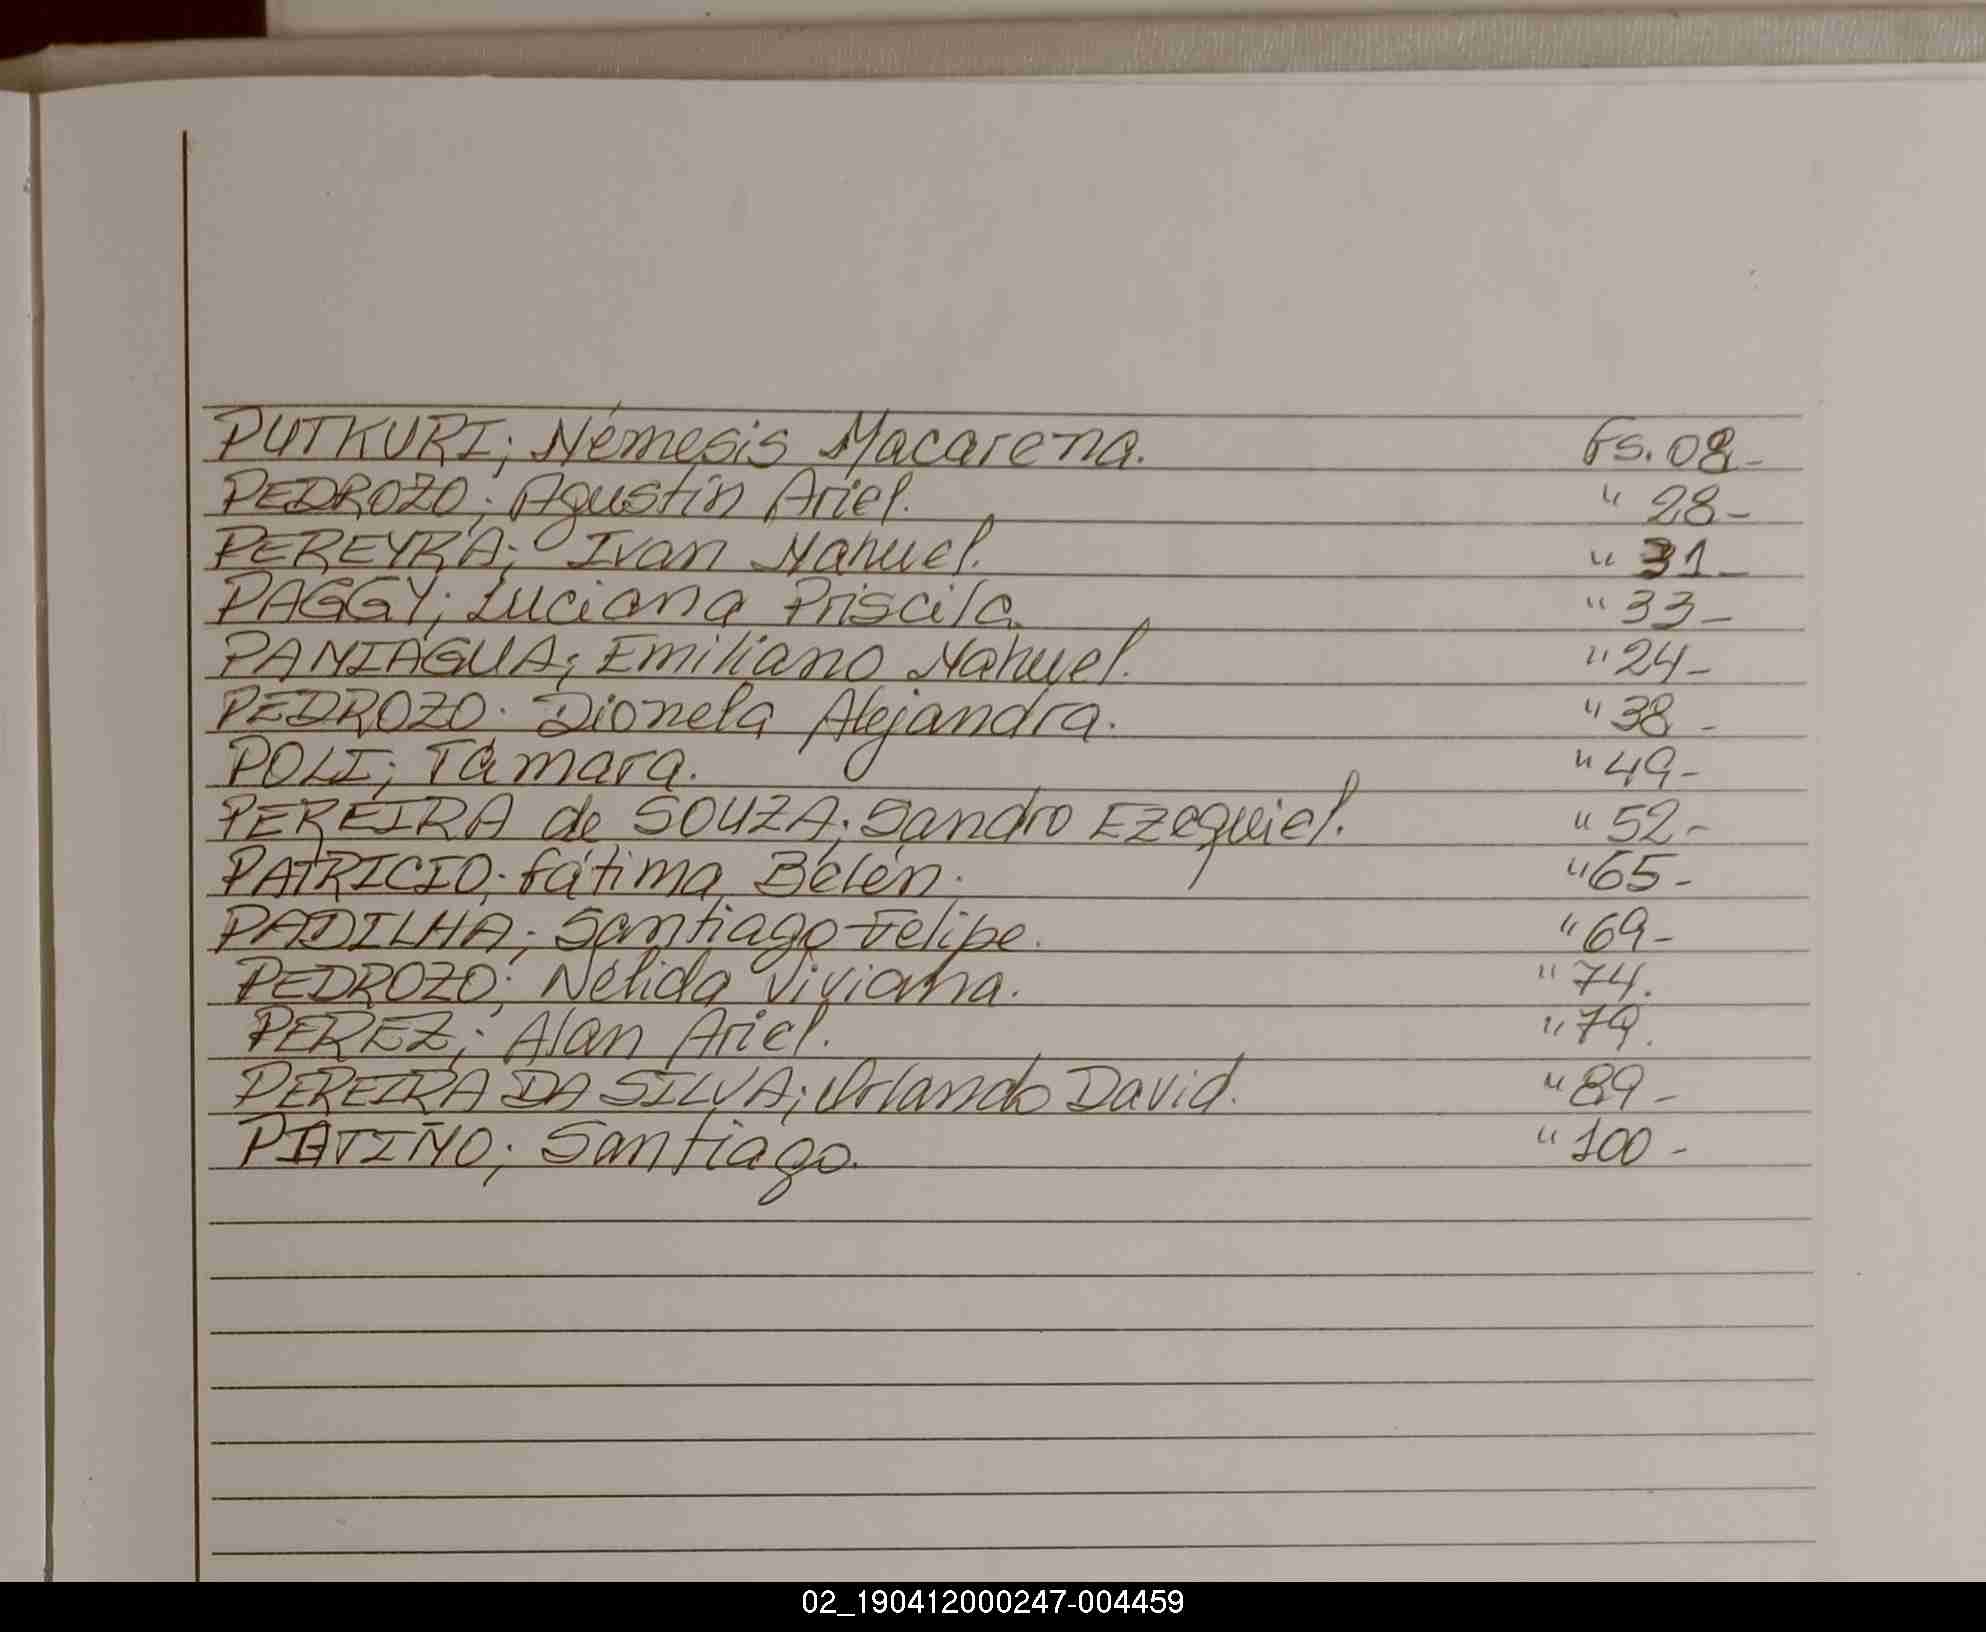 PUTKURI; Némesis Macarena. Fs. 08-
PEDROZO; Agustín Ariel. " 28-
PEREYRA; Ivan Nahuel. " 31-
PAGGY; Luciana Priscila. " 33-
PANIAGUA; Emiliano Nahuel. " 24-
PEDROZO. Dionela Alejandra. " 38-
POLI; Támara. " 49-
PEREIRA de SOUZA; Sandro Ezequiel. " 52-
PATRICIO; fátima Belén. " 65-
PADILHA; Santiago Felipe. " 69-
PEDROZO; Nélida Viviana. " 74.
PEREZ; Alan Ariel. " 79.
PEREIRA DA SILVA; Orlando David. " 89-
PATIÑO; Santiago. " 100-
02_190412000247-004459